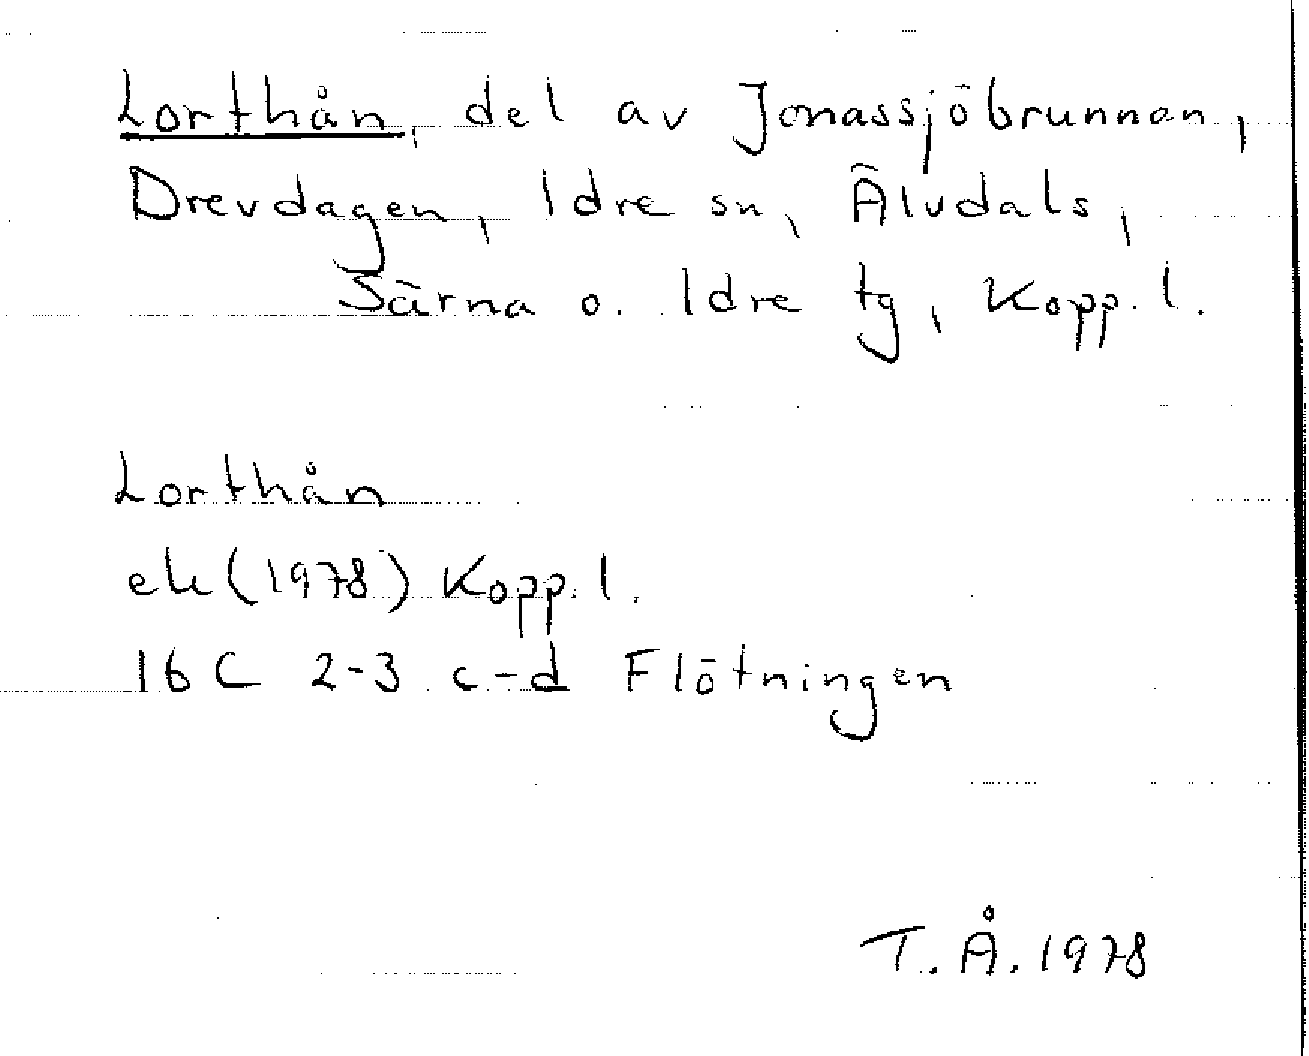 Lorthån, del av Jonassjöbrunnen,
Drevdagen, Idre sn, Älvdals,
Särna o. Idre tg, Kopp. l.
Lorthån
ek (1978) Kopp. l.
16 C 2-3 c-d Flötningen
T. Å. 1978